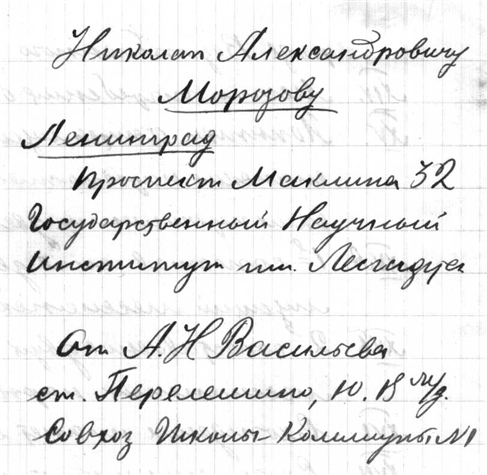 Николаю Александровичу
Морозову
Ленинград
проспект Маклина 32
Государственный Научный
Институт им. Лесгафта
От А. Н Васильева
ст. Перелешино, Ю. В ж/д.
Совхоз Школы Коммуны №1